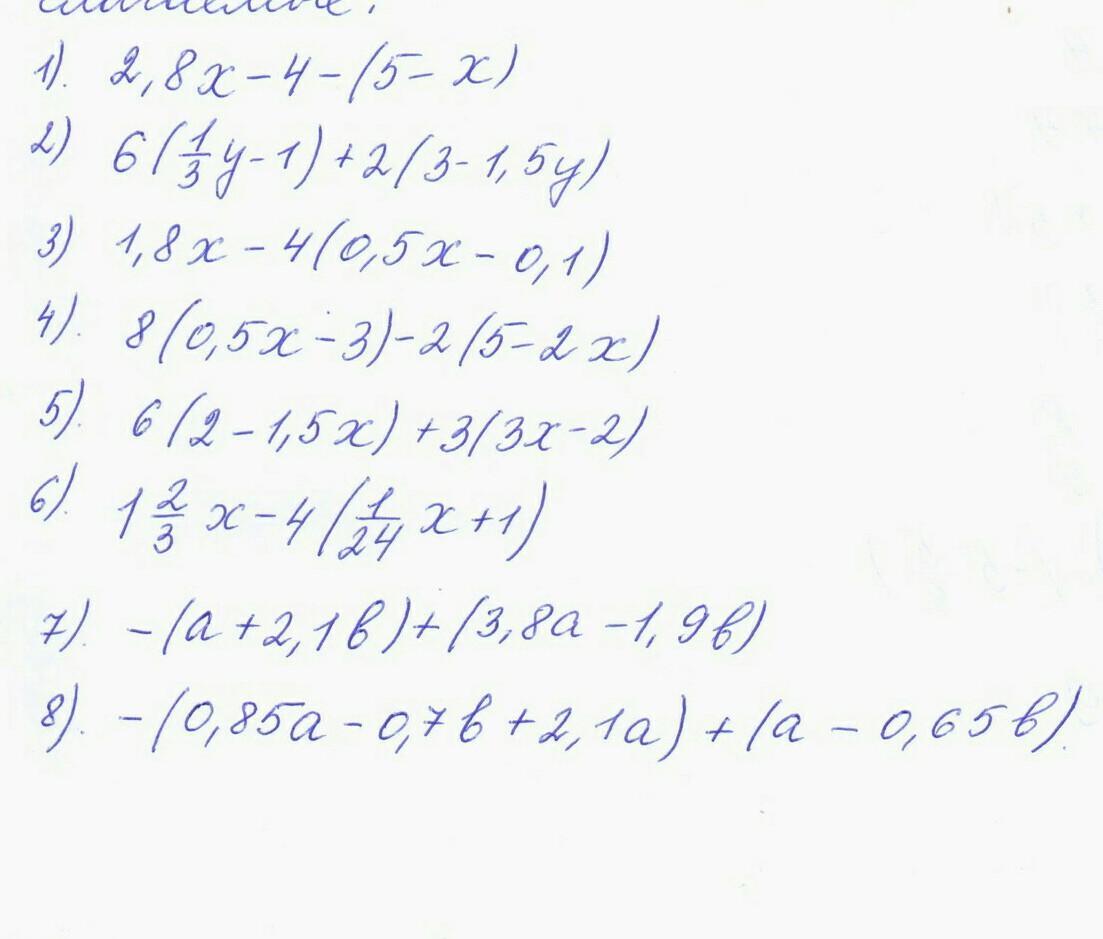 слагаемые.
1). 2,8x - 4 - (5 - x)
2) 6(1/3y - 1) + 2(3 - 1,5y)
3) 1,8x - 4(0,5x - 0,1)
4). 8(0,5x - 3) - 2(5 - 2x)
5). 6(2 - 1,5x) + 3(3x - 2)
6). 1 2/3 x - 4(1/24 x + 1)
7). -(a + 2,1b) + (3,8a - 1,9b)
8). -(0,85a - 0,7b + 2,1a) + (a - 0,65b).